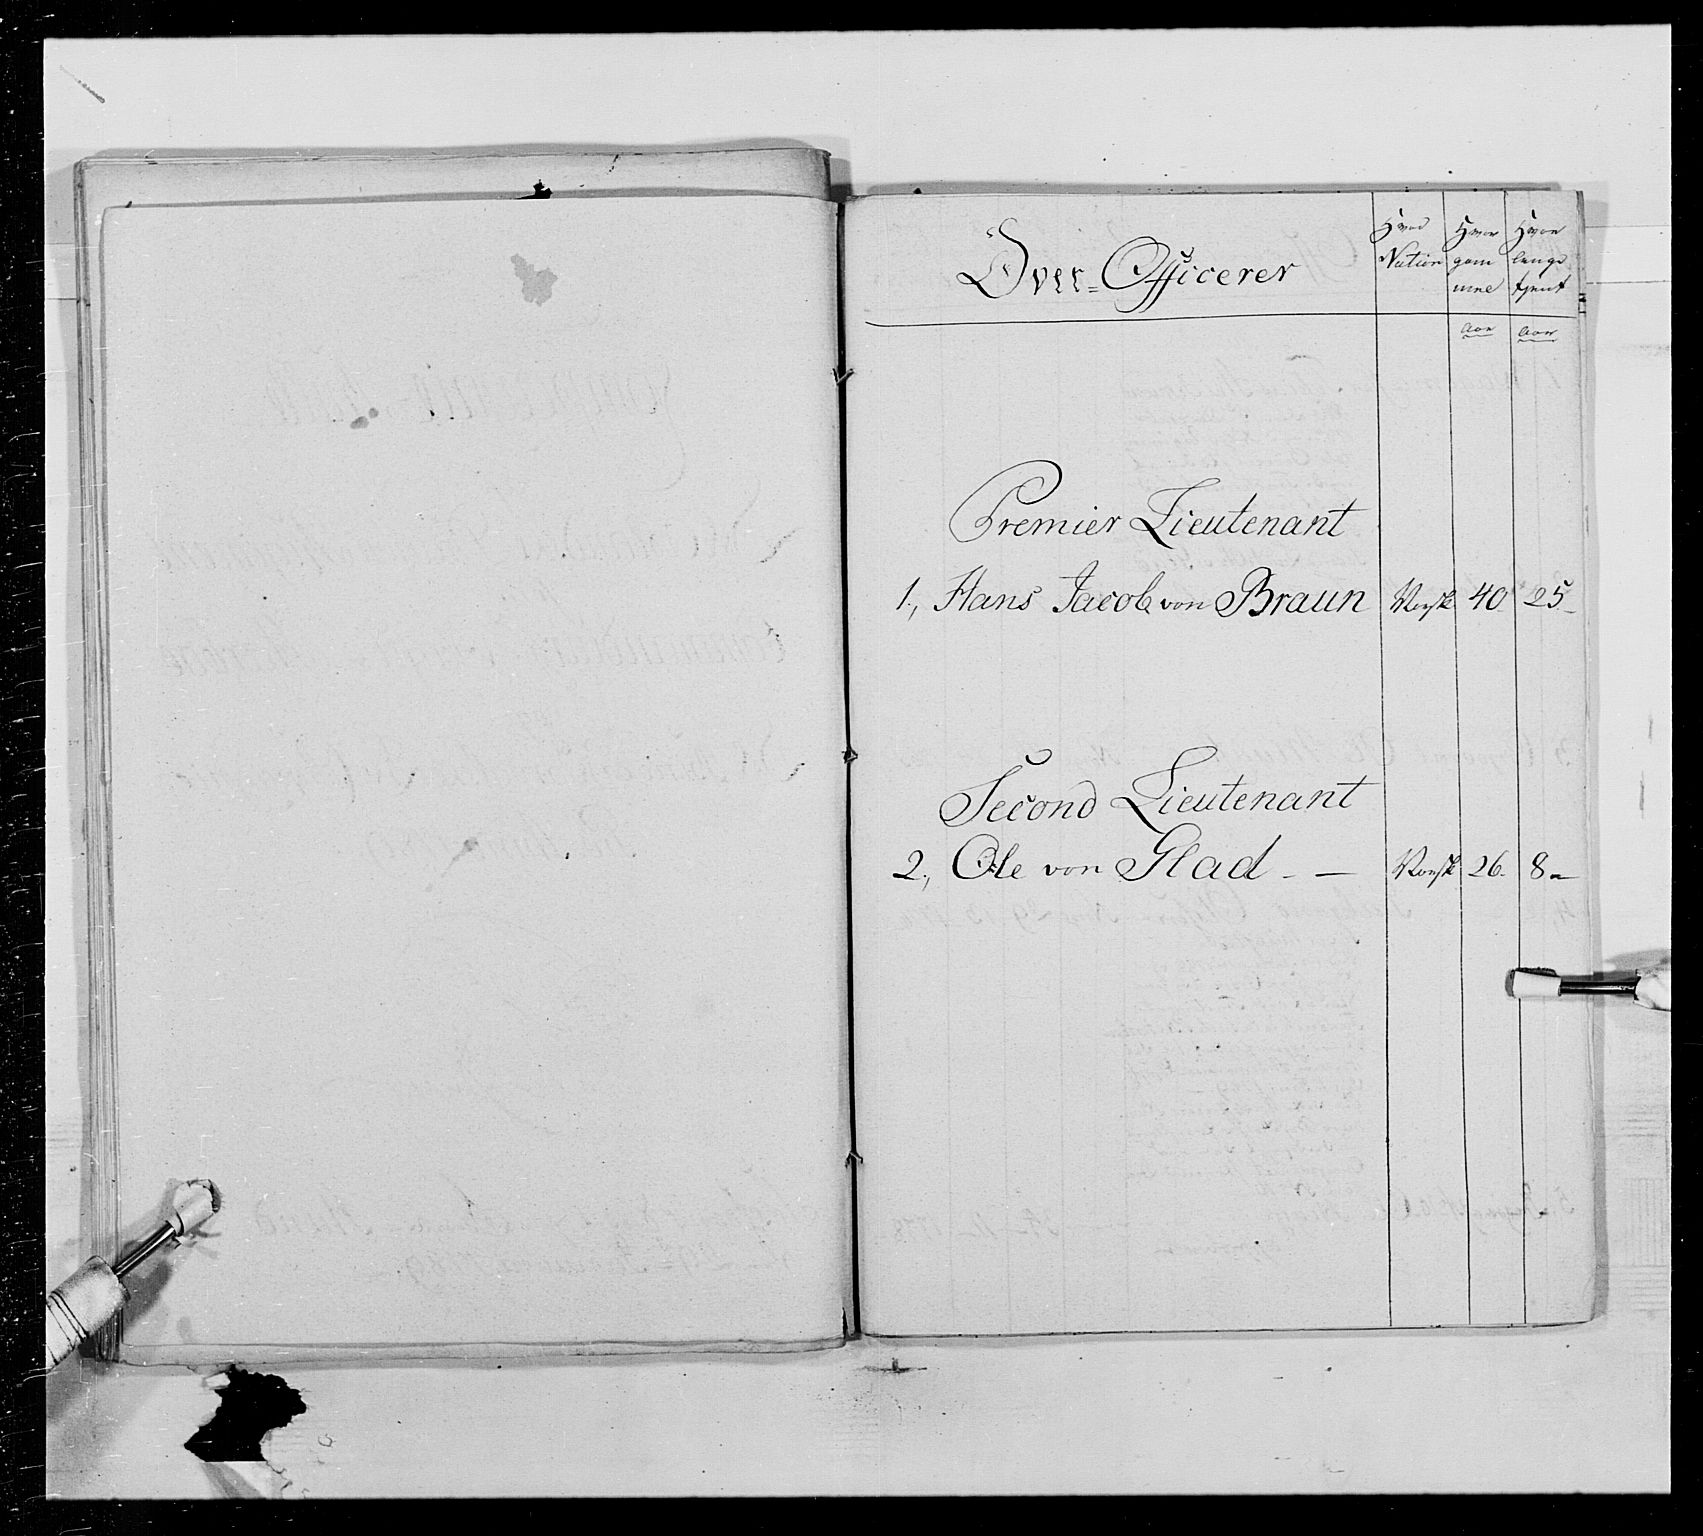 Over-Officerer
Hvad Nation
Hvor gam mel
Hvor længe tjent
Aar
Aar
Premier Lieutenant
1., Hans Jacob von Braun Norsk 40 25
Second Lieutenant
2., Ole von Glad - — Norsk 26 8